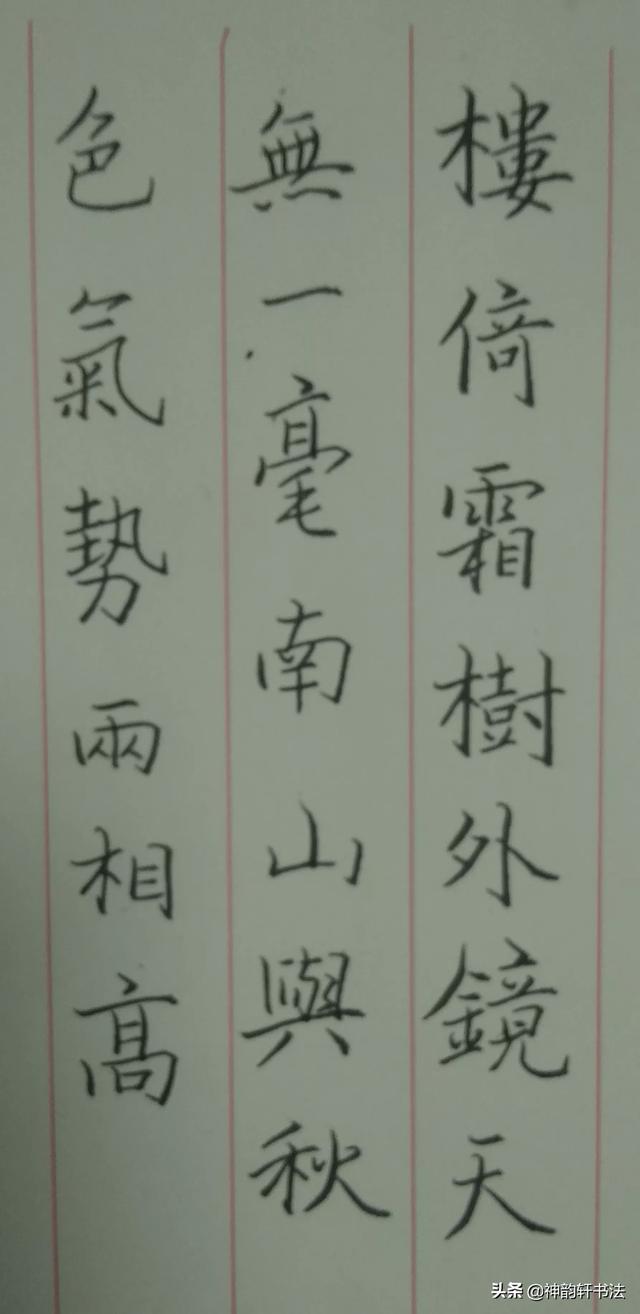 樓倚霜樹外鏡天
無一毫南山與秋
色氣勢兩相高
头条 @神韵轩书法